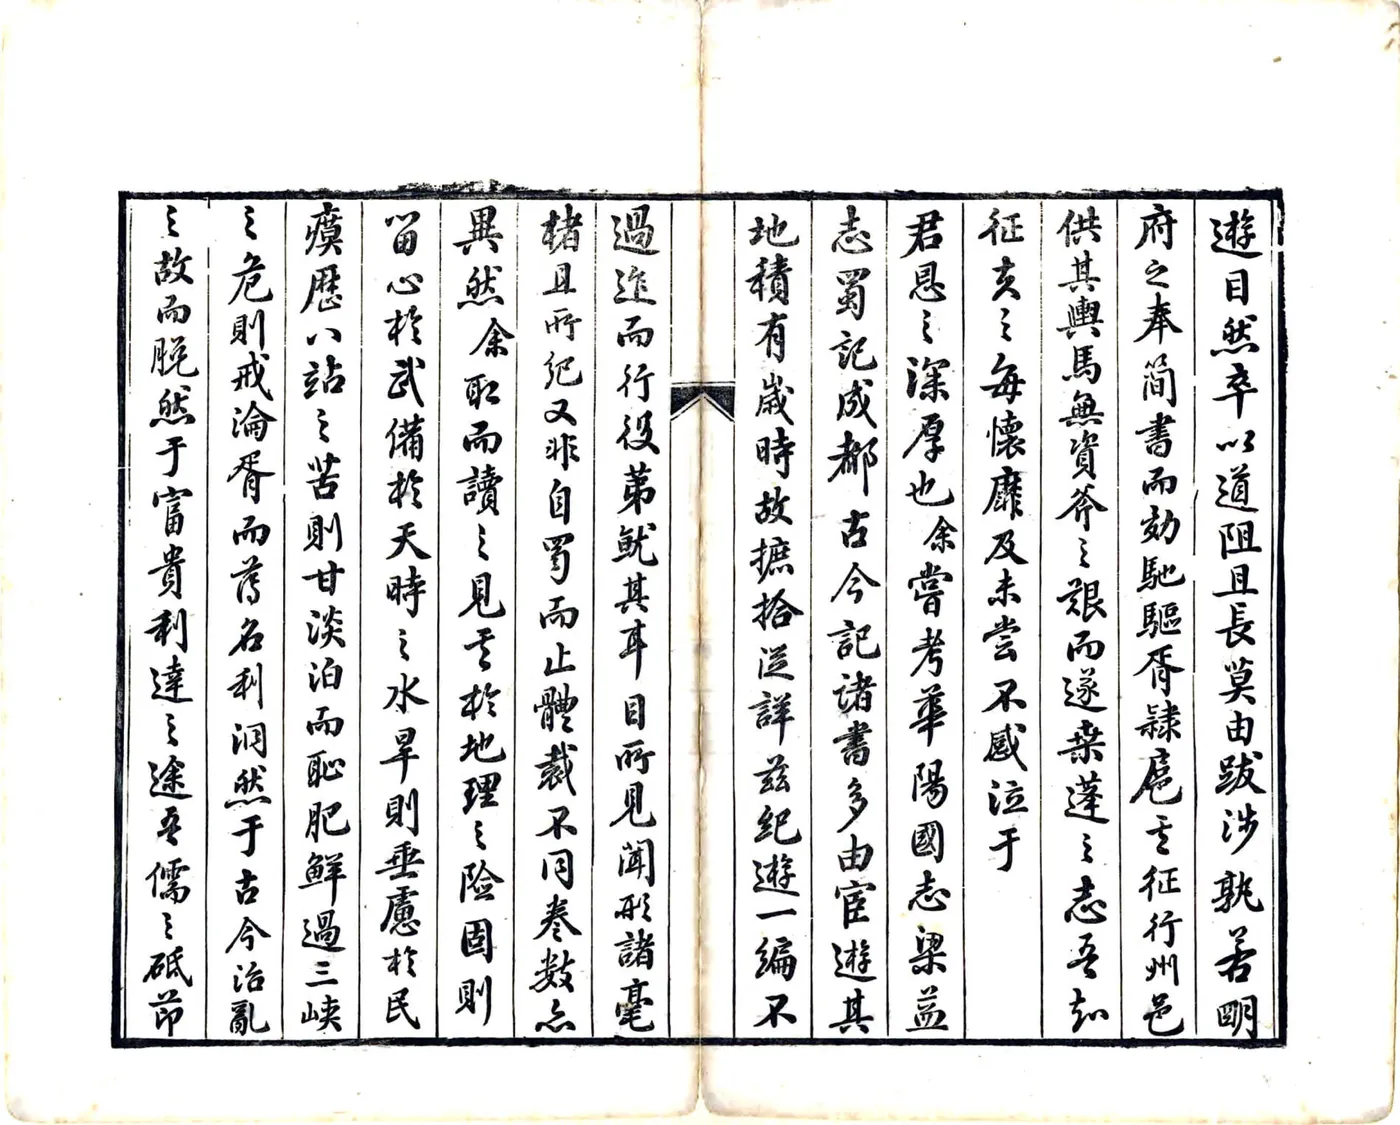 遊目然卒以道阻且長莫由跋涉孰若明
府之奉簡書而効馳驅胥隸扈其征行州邑
供其輿馬無資斧之艱而遂桑蓬之志吾知
征夫之每懷靡及未嘗不感泣于
君恩之深厚也余嘗考華陽國志梁益
志蜀記成都古今記諸書多由宦遊其
地積有歲時故摭拾從詳茲紀遊一編不
過迬而行役第就其耳目所見聞形諸毫
楮且所紀又非自蜀而止體裁不同卷數亦
異然余取而讀之見其於地理之險固則
留心於武備於天時之水旱則垂慮於民
瘼歷八站之苦則甘淡泊而恥肥鮮過三峽
之危則戒淪胥而薄名利洞然于古今治亂
之故而脫然于富貴利達之途吾儒之砥節